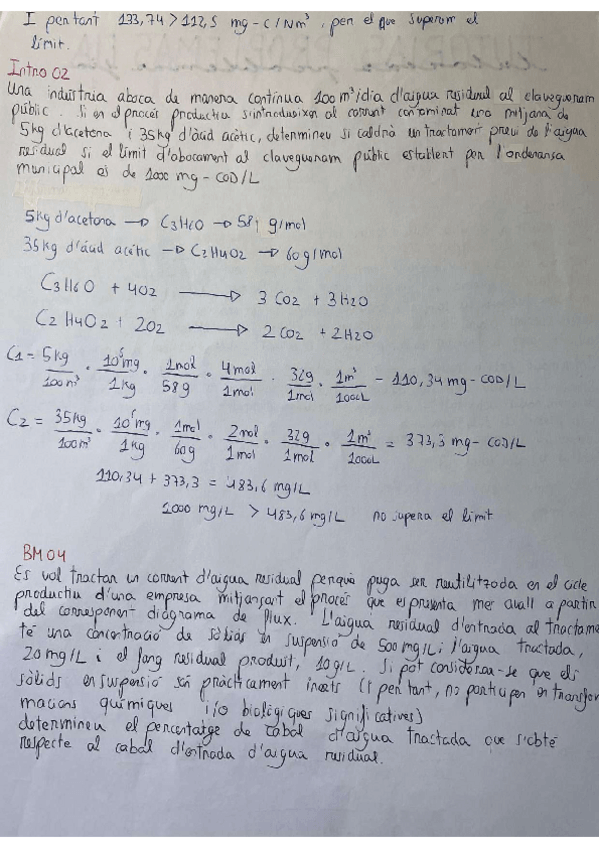 I per tant 133,74 > 112,5 mg-C/Nm³, per el que superem el
límit.
Intro 02
Una indústria aboca de manera contínua 100 m³/dia d'aigua residual al clavegueram
públic. Si en el procés productiu s'introdueixen al corrent contaminat una mitjana de
5kg d'acetona i 35kg d'àcid acètic, determineu si caldrà un tractament previ de l'aigua
residual si el límit d'abocament al clavegueram públic establert per l'ordenansa
municipal és de 1000 mg-COD/L
5kg d'acetona → C3H6O → 58,1 g/mol
35kg d'àcid acètic → C2H4O2 → 60g/mol
C3H6O + 4O2 → 3CO2 + 3H2O
C2H4O2 + 2O2 → 2CO2 + 2H2O
C1 = 5kg/100m³ · 10⁶mg/1kg · 1mol/58g · 4mol/1mol · 32g/1mol · 1m³/1000L - 110,34 mg-COD/L
C2 = 35kg/100m³ · 10⁶mg/1kg · 1mol/60g · 2mol/1mol · 32g/1mol · 1m³/1000L = 373,3 mg-COD/L
110,34 + 373,3 = 483,6 mg/L
1000 mg/L > 483,6 mg/L no supera el límit
BM04
Es vol tractar un corrent d'aigua residual perquè puga ser reutilitzada en el cicle
productiu d'una empresa mitjançant el procés que es presenta més avall a partir
del corresponent diagrama de flux. L'aigua residual d'entrada al tractame
té una concentració de sòlids en suspensió de 500 mg/L; l'aigua tractada,
20 mg/L i el fang residual produït, 10g/L. Si pot considerar-se que els
sòlids en suspensió són pràcticament inerts (i per tant, no participen en transfor
macions químiques i/o biològiques significatives)
determineu el percentatge de cabal d'aigua tractada que s'obté
respecte al cabal d'entrada d'aigua residual.